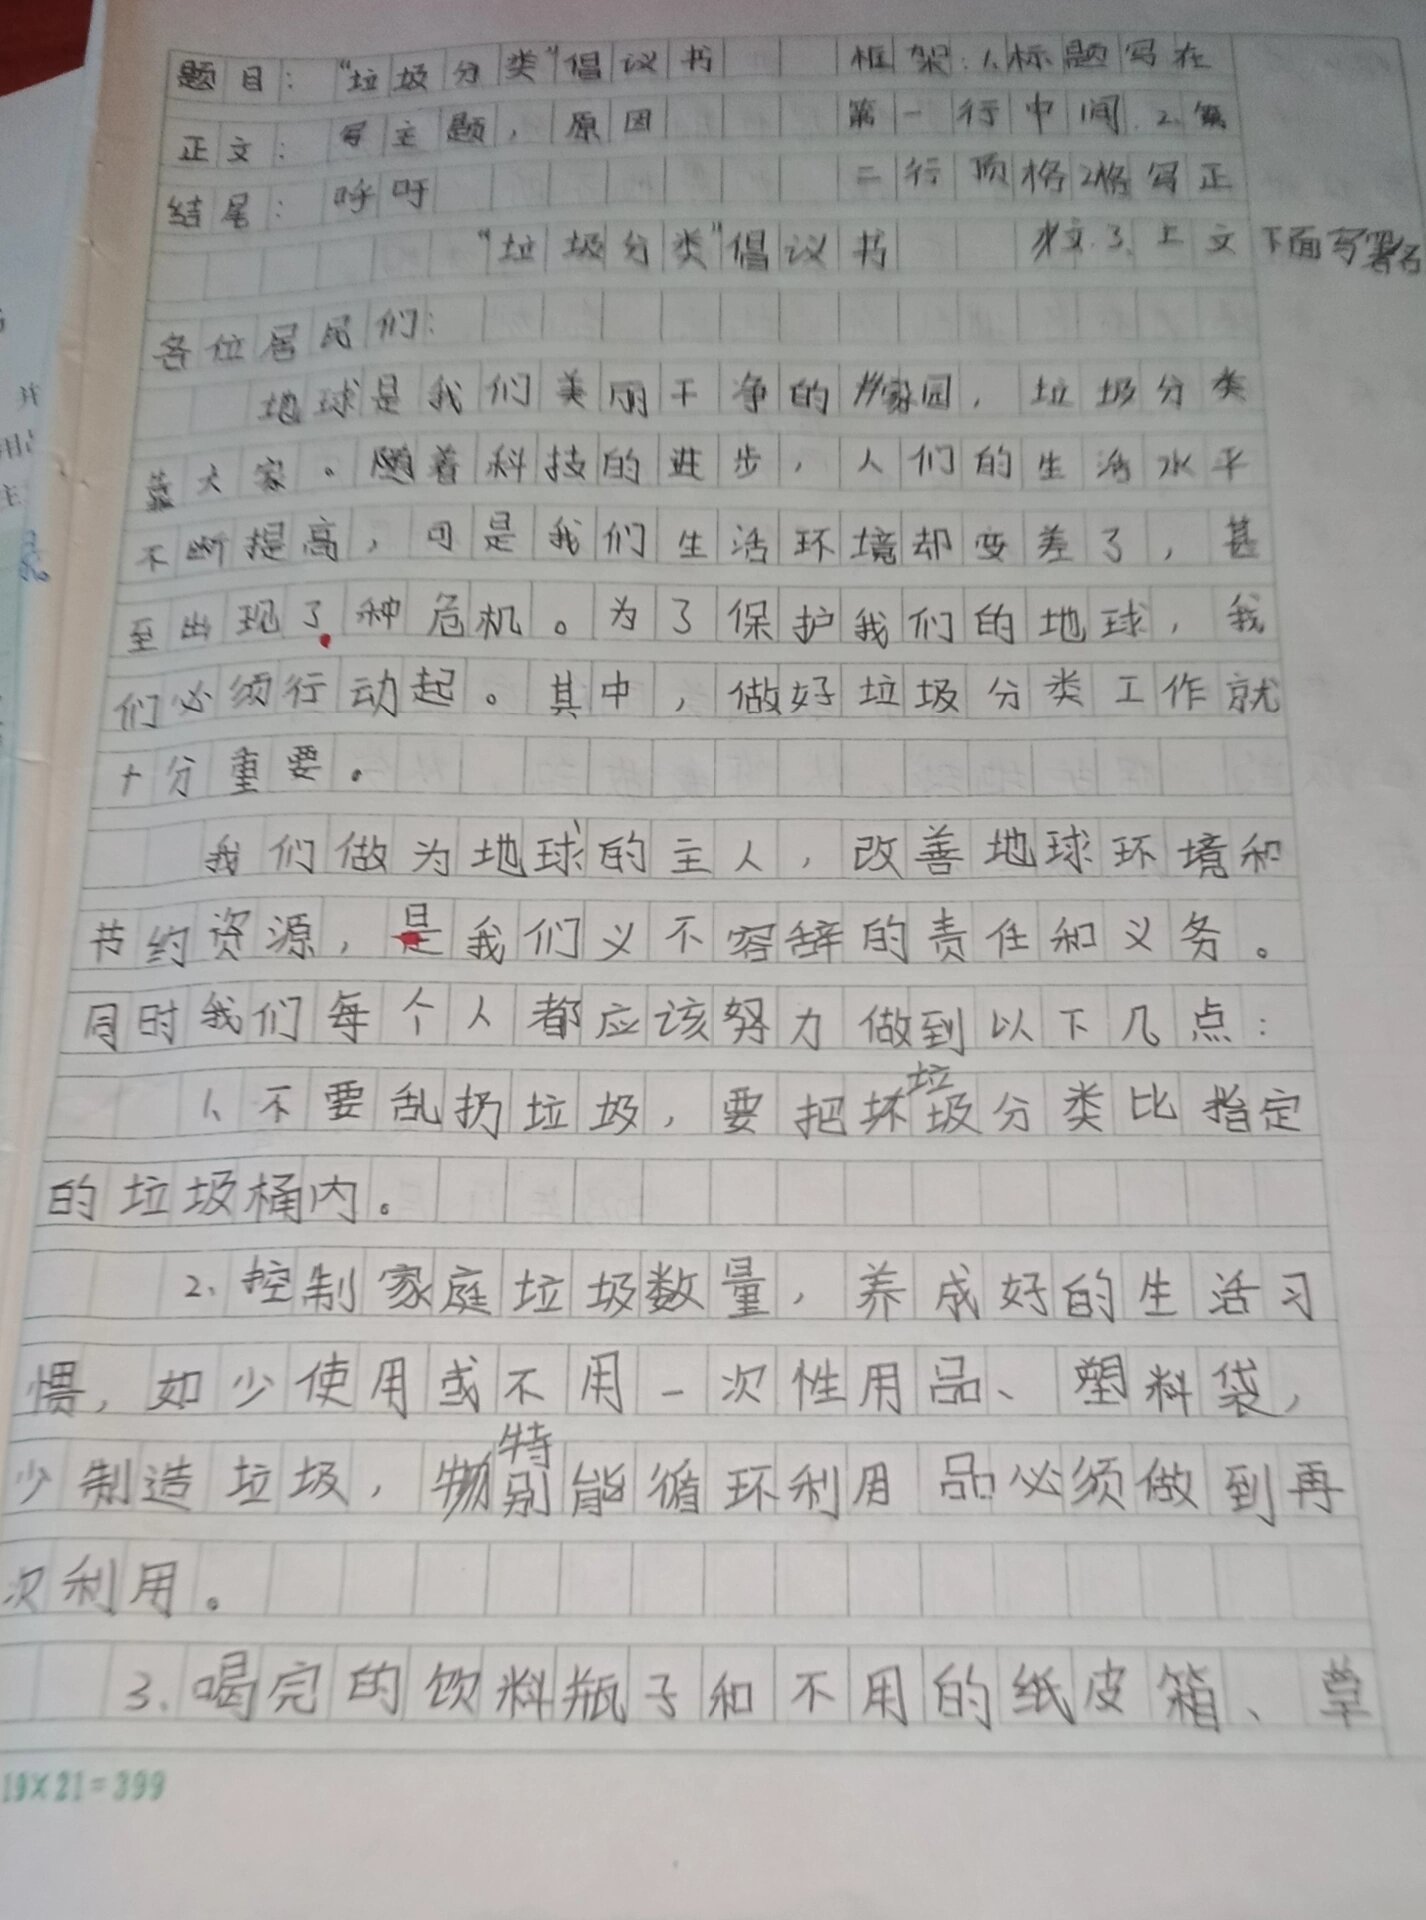 题目：“垃圾分类”倡议书
框架：1、标题写在
正文：写主题，原因
第一行中间.2.第
结尾：呼吁
二行顶格2格写正
文.3、上文下面写署名
“垃圾分类”倡议书
各位居民们：
地球是我们美丽干净的家园，垃圾分类
靠大家。随着科技的进步，人们的生活水平
不断提高，可是我们生活环境却变差了，甚
至出现了种危机。为了保护我们的地球，我
们必须行动起。其中，做好垃圾分类工作就
十分重要。
我们做为地球的主人，改善地球环境和
节约资源，是我们义不容辞的责任和义务。
同时我们每个人都应该努力做到以下几点：
1、不要乱扔垃圾，要把垃圾分类比指定
的垃圾桶内。
2、控制家庭垃圾数量，养成好的生活习
惯，如少使用或不用一次性用品、塑料袋，
少制造垃圾，特别能循环利用品必须做到再
次利用。
3、喝完的饮料瓶子和不用的纸皮箱、草
19×21=399